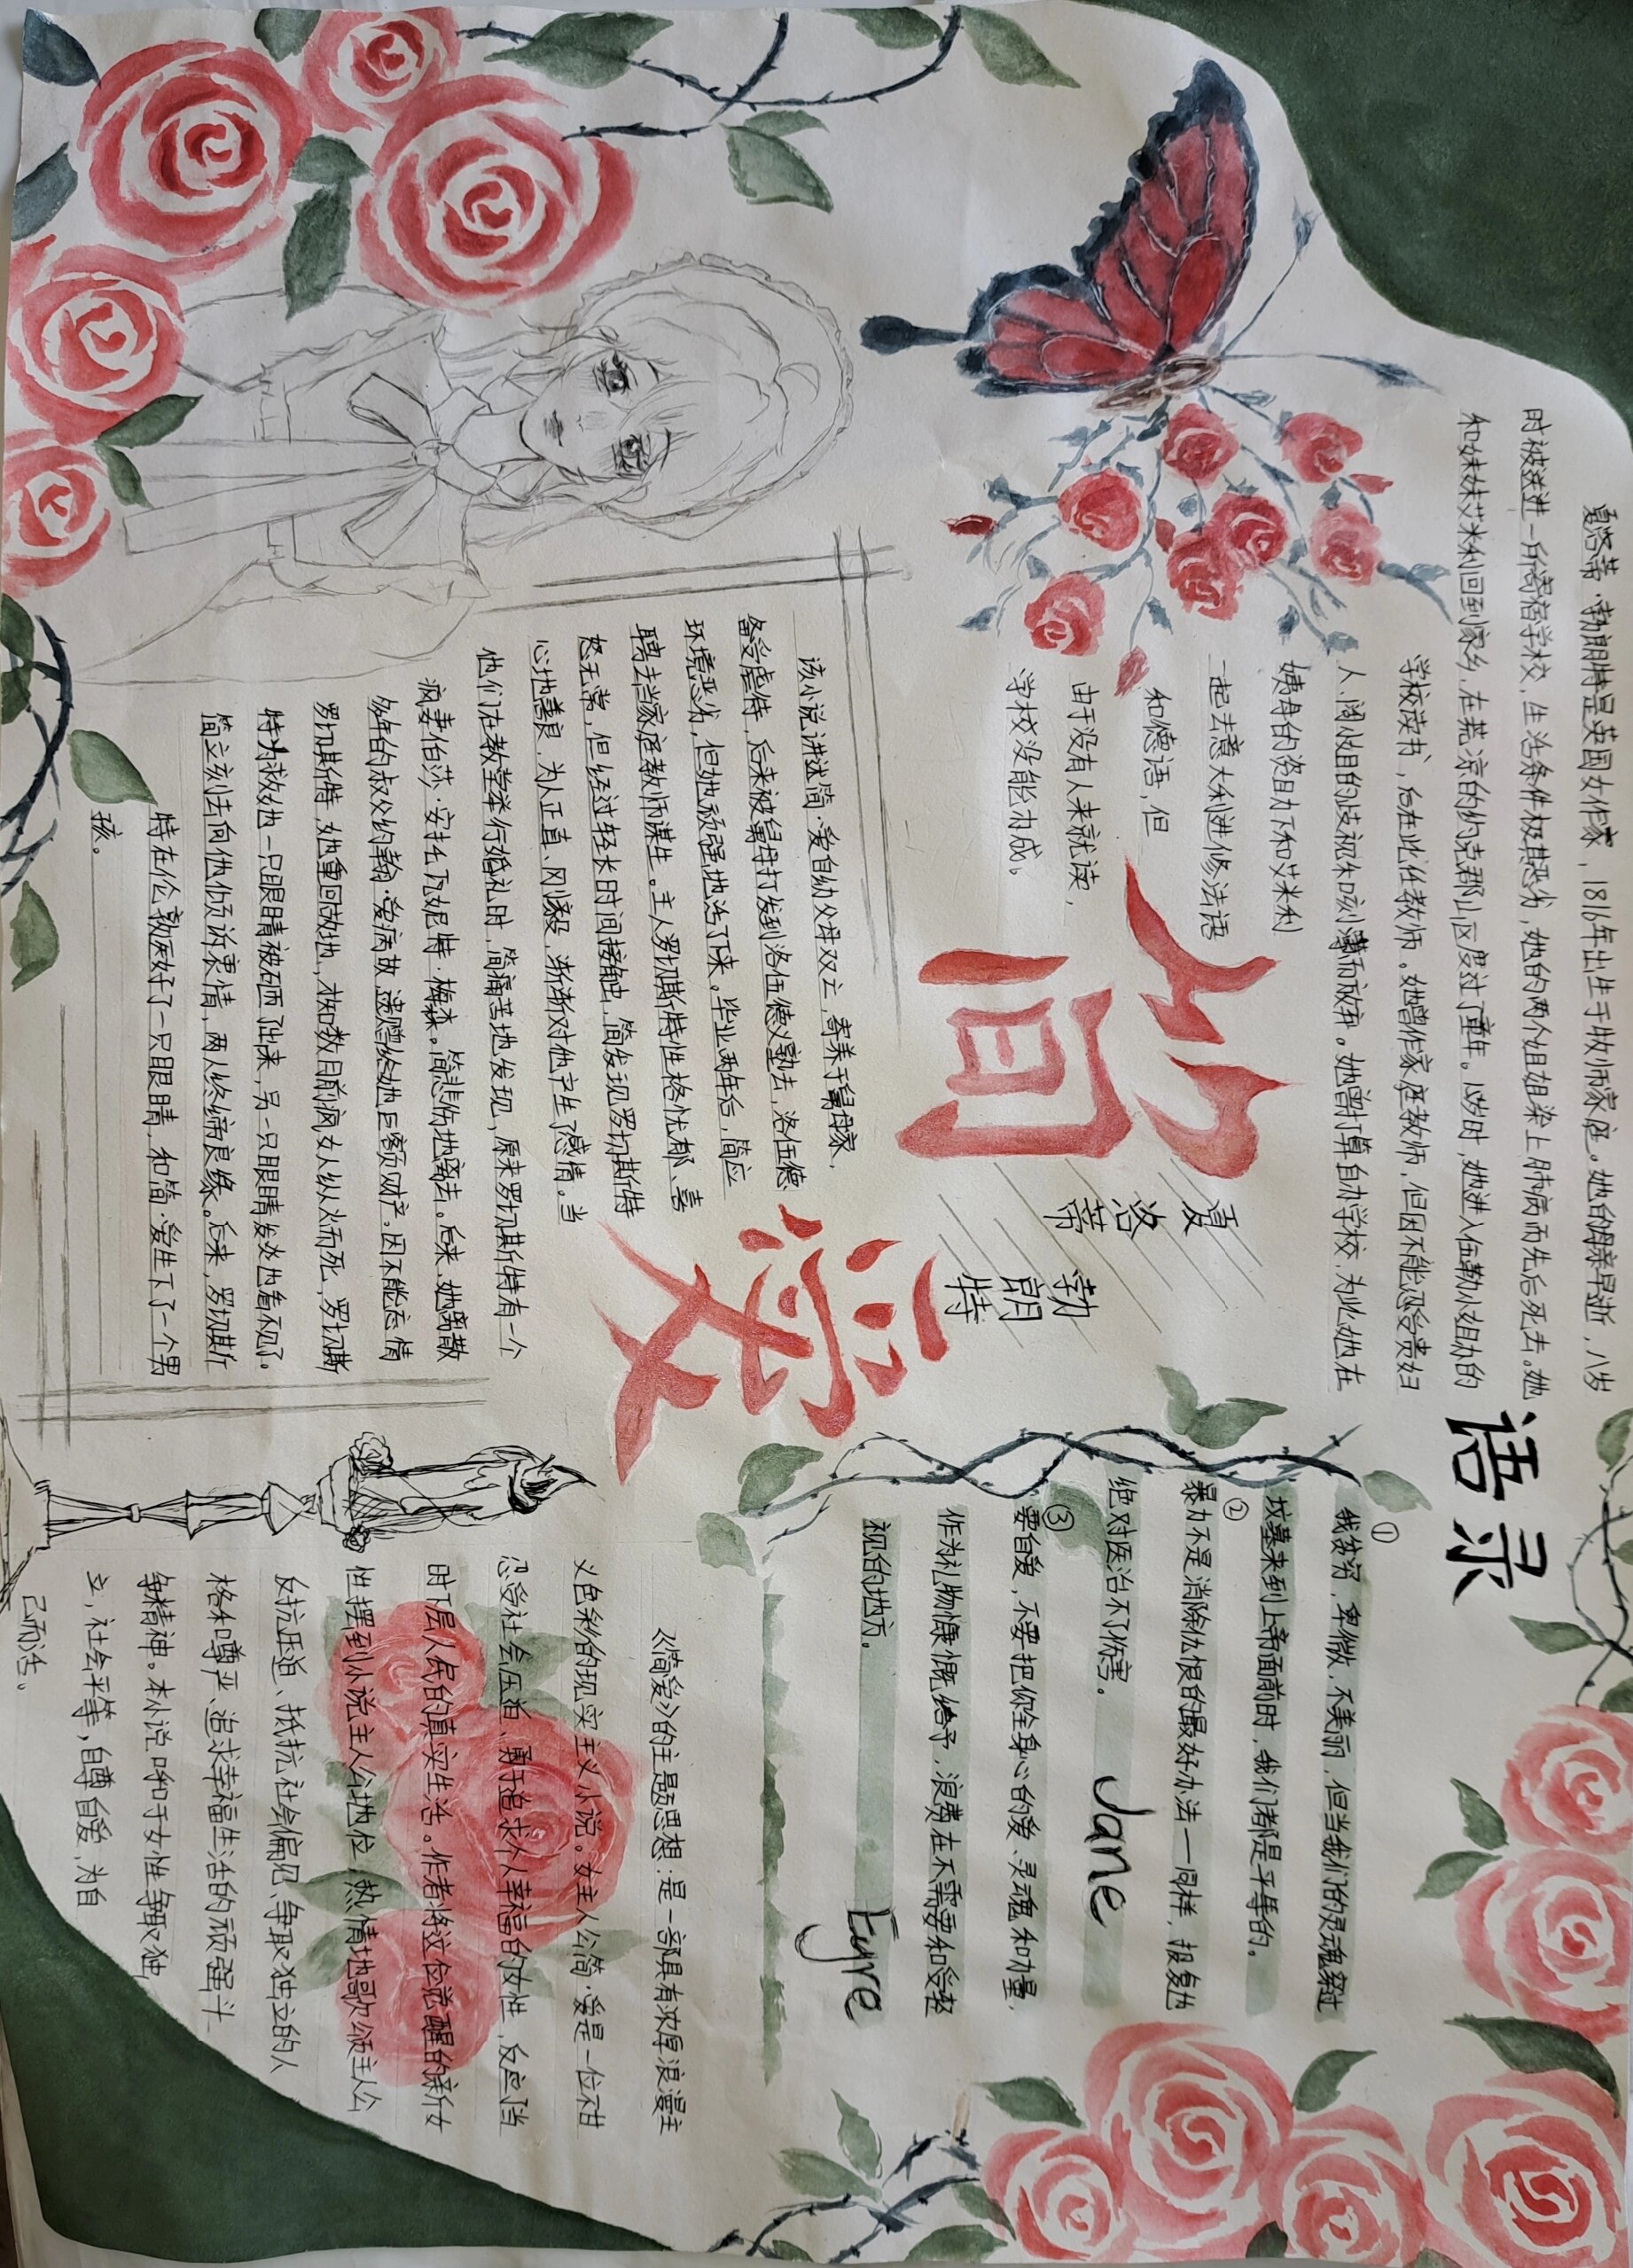 夏洛蒂·勃朗特是英国女作家，1816年出生于牧师家庭。她的母亲早逝，八岁
时被送进一所寄宿学校，生活条件极其恶劣，她的两个姐姐染上肺病而先后死去。她
和妹妹艾米利回到家乡，在荒凉的约克郡山区度过了童年。15岁时，她进入伍勒小姐办的
学校读书，后在此任教师。她曾作家庭教师，但因不能忍受贵妇
人、阔小姐的歧视和刻薄而放弃。她曾打算自办学校，为此她在
姨母的资助下和艾米利
一起去意大利进修法语
和德语，但
由于没有人来就读，
学校没能办成。
简
爱
夏洛蒂
勃朗特
该小说讲述简·爱自幼父母双亡，寄养于舅母家，
备受虐待，后来被舅母打发到洛伍德义塾去，洛伍德
环境恶劣，但她顽强地活了下来。毕业两年后，简应
聘去当家庭教师谋生。主人罗切斯特性格忧郁、喜
怒无常，但经过较长时间接触，简发现罗切斯特
心地善良，为人正直、刚毅，渐渐对他产生了感情。当
他们在教堂举行婚礼时，简痛苦地发现，原来罗切斯特有一个
疯妻伯莎·安托瓦妮特·梅森。简悲伤地离去。后来，她离散
多年的叔父约翰·爱病故，遗赠给她巨额财产。因不能忘情
罗切斯特，她重回故地，才知数日前疯女人纵火而死，罗切斯
特为救她一只眼睛被砸了出来，另一只眼睛发炎也看不见了。
简立刻去向他倾诉衷情，两人终缔良缘。后来，罗切斯
特在伦敦医好了一只眼睛，和简·爱生下了一个男
孩。
语录
①
我贫穷，卑微，不美丽，但当我们的灵魂穿过
坟墓来到上帝面前时，我们都是平等的。
②
暴力不是消除仇恨的最好办法——同样，报复也
绝对医治不了伤害。
③
要自爱，不要把你全身心的爱、灵魂和力量，
作为礼物慷慨给予，浪费在不需要和受轻
视的地方。
Jane
Eyre
《简爱》的主题思想：是一部具有浓厚浪漫主
义色彩的现实主义小说。女主人公简·爱是一位不甘
忍受社会压迫、勇于追求个人幸福的女性，反应当
时下层人民的真实生活。作者将这位觉醒的新女
性摆到小说主人公地位，热情地歌颂主人公
反抗压迫、抵抗社会偏见、争取独立的人
格和尊严、追求幸福生活的顽强斗
争精神。本小说呼吁女性争取独
立，社会平等，自尊自爱，为自
己而活。